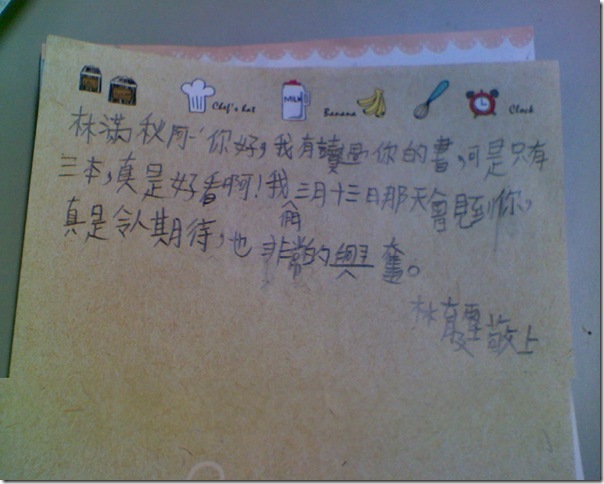 Chef's hat MILK Banana Clock
林滿秋阿姨你好,我有讀過你的書,可是只有
三本,真是好看啊!我們三月十三日那天會見到你,
真是令人期待,也非常的興奮。
林育 敬上